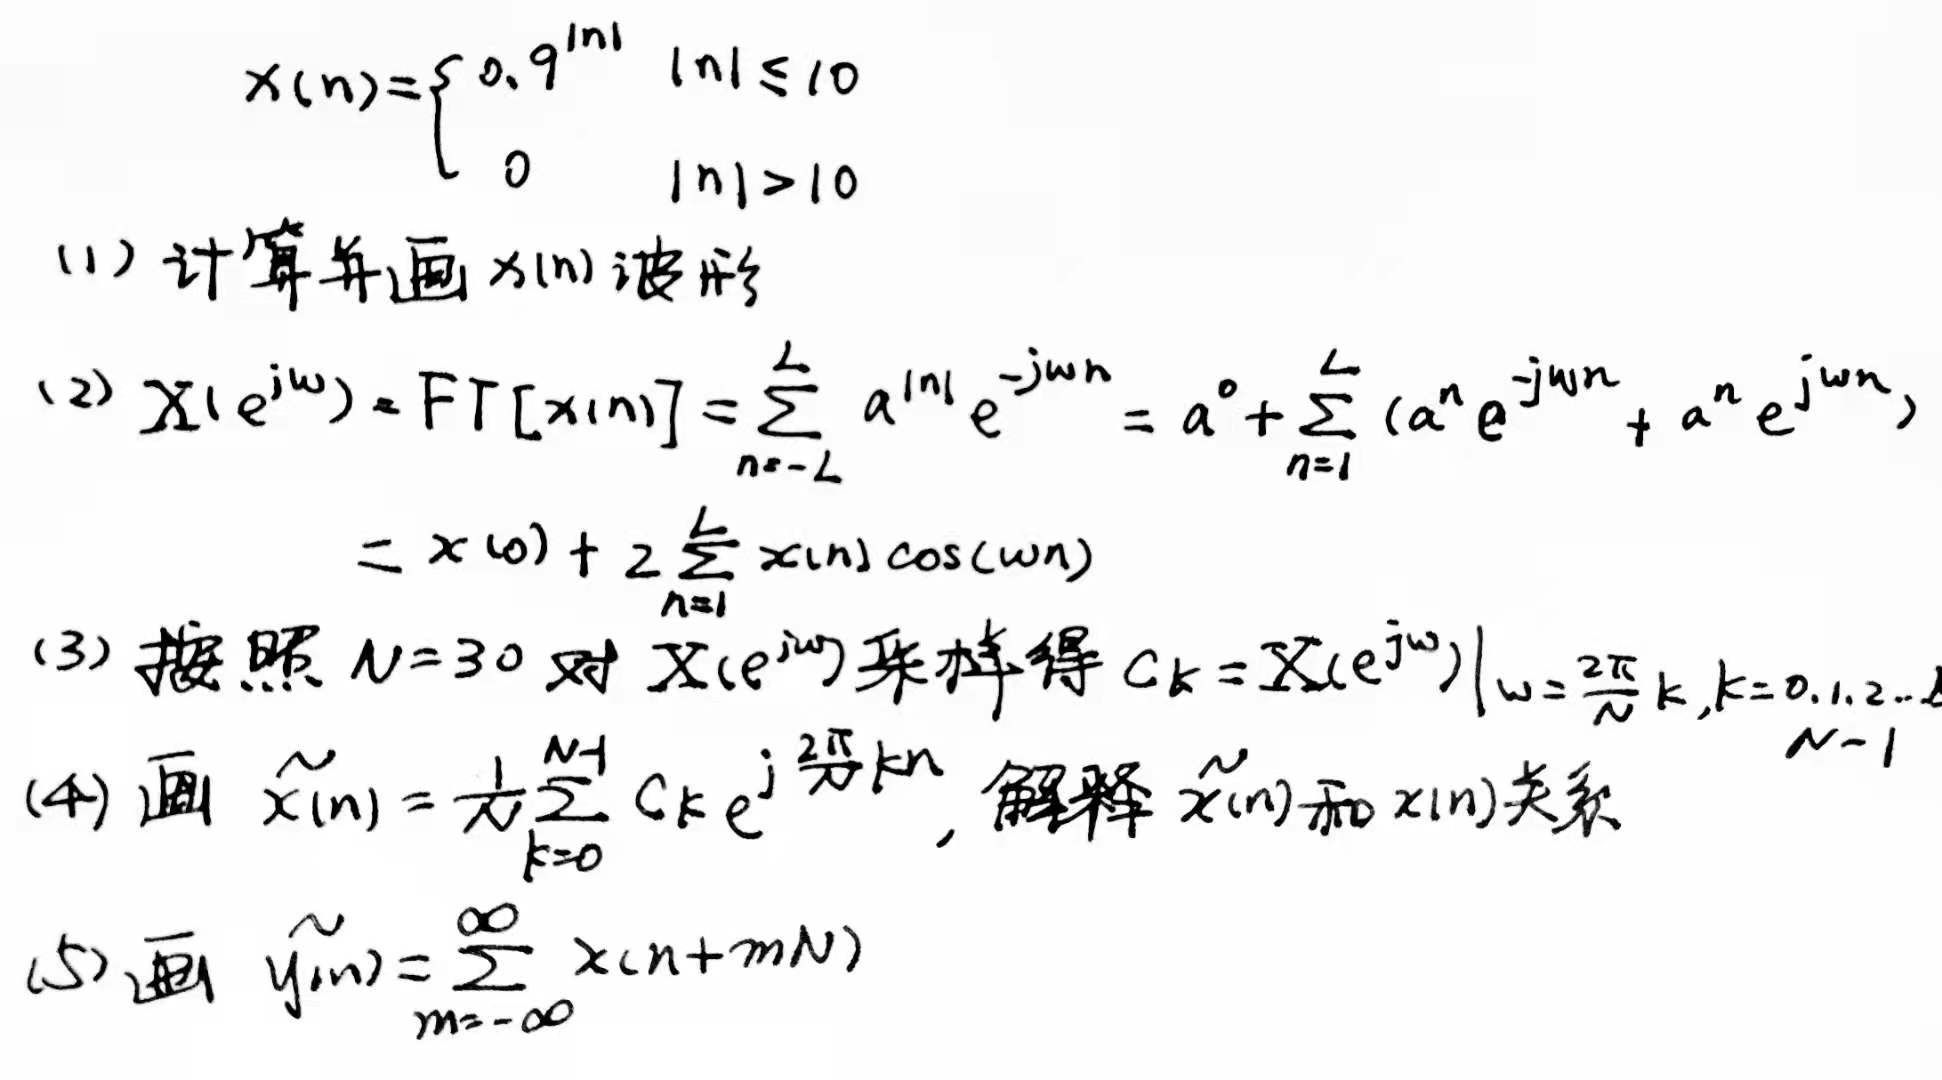 x(n)={0.9^|n| |n|≤10
0 |n|>10
(1) 计算并画 x(n) 波形
(2) X(e^{jω}) = FT[x(n)] = ∑_{n=-L}^{L} a^{|n|} e^{-jωn} = a^0 + ∑_{n=1}^{L} (a^n e^{-jωn} + a^n e^{jωn})
= x(0) + 2∑_{n=1}^{L} x(n) cos(ωn)
(3) 按照 N=30 对 X(e^{jω}) 采样得 C_k = X(e^{jω})|_{ω=\frac{2π}{N}k, k=0.1.2...N-1}
(4) 画 x̃(n) = \frac{1}{N}∑_{k=0}^{N-1} C_k e^{j\frac{2π}{N}kn}, 解释 x̃(n) 和 x(n) 关系
(5) 画 ỹ(n) = ∑_{m=-∞}^{∞} x(n+mN)